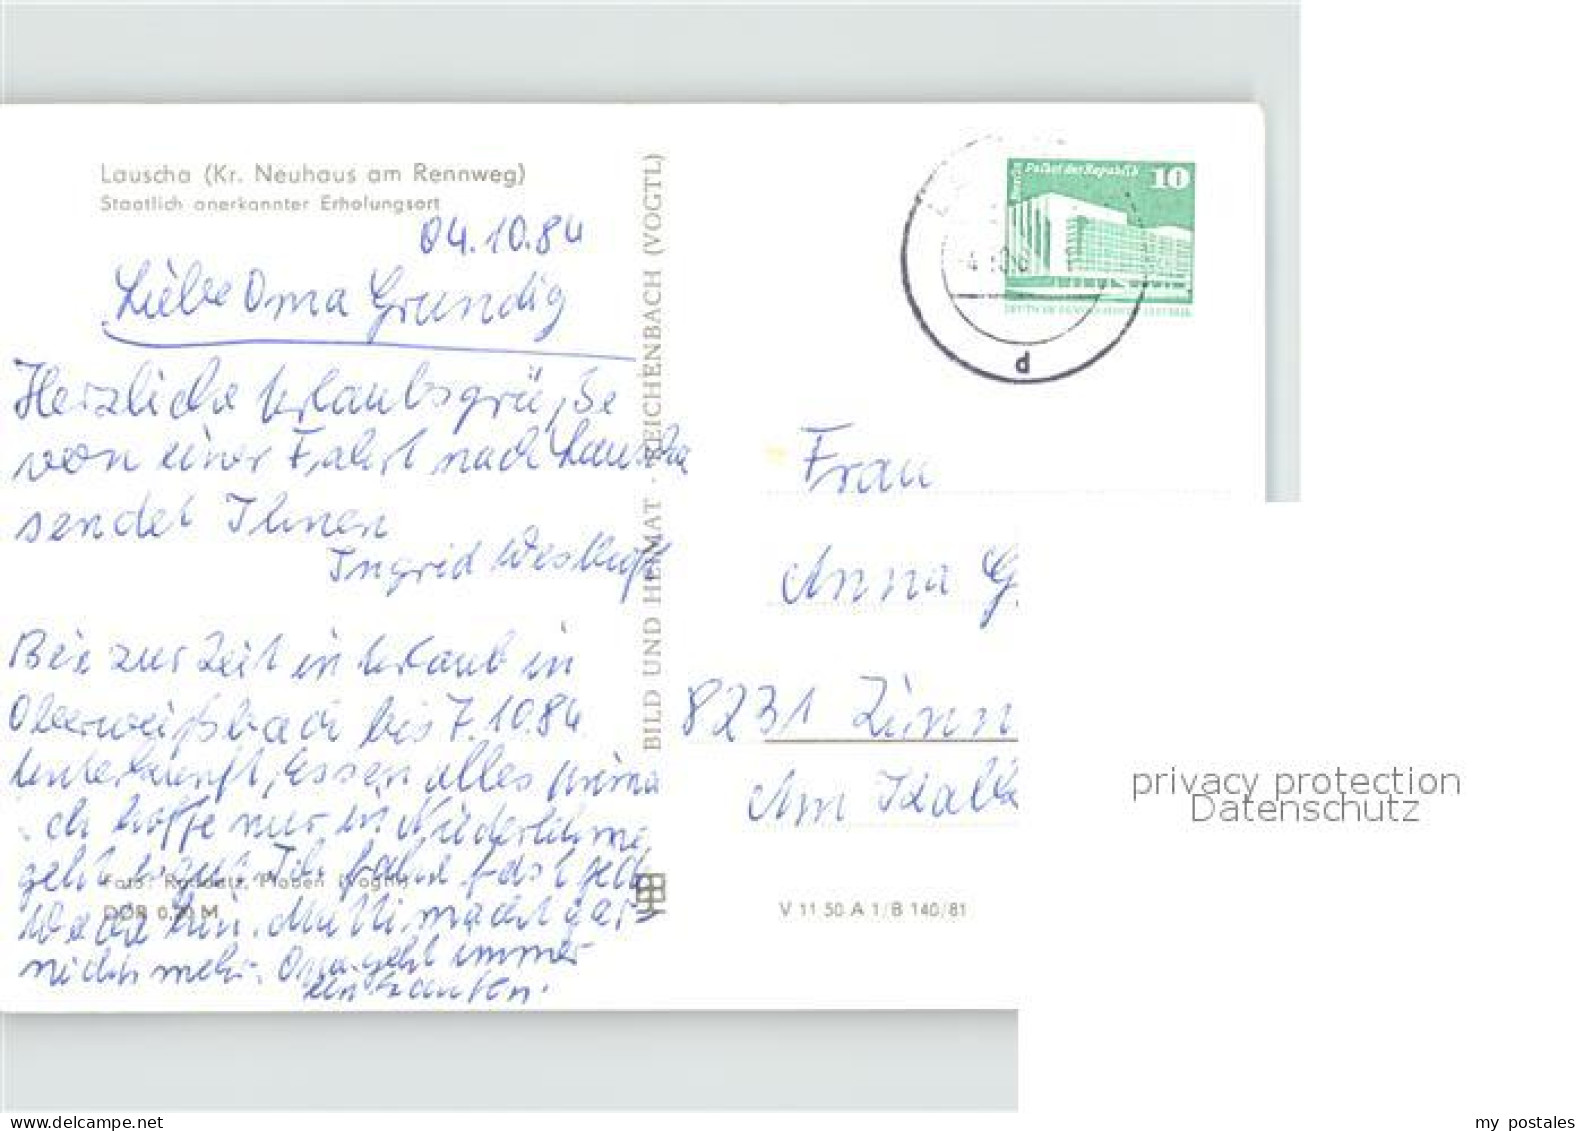 Lauscha (Kr. Neuhaus am Rennweg)
Staatlich anerkannter Erholungsort
04.10.84
Liebe Oma Grundig
Herzliche Urlaubsgrüße
von einer Fahrt nach Lauscha
sendet Ihnen
Ingrid
Bin zur Zeit in Urlaub in
Oberweißbach bis 7.10.84
Unterkunft, Essen alles prima
ich hoffe nur in Niederlehme
geht gut. Ich fahre fast jede
Woche hin. Mutti macht gar
nichts mehr. Oma geht immer
einkaufen.
Foto: Raddatz, Plauen (Vogtl.)
DDR 0,20 M
BILD UND HEIMAT · REICHENBACH (VOGTL)
V 11 50 A 1/B 140/81
Berlin Palast der Republik 10
DEUTSCHE DEMOKRATISCHE REPUBLIK
d
Frau
Anna G
8231 Zinn
Am Kalk
privacy protection
Datenschutz
my postales